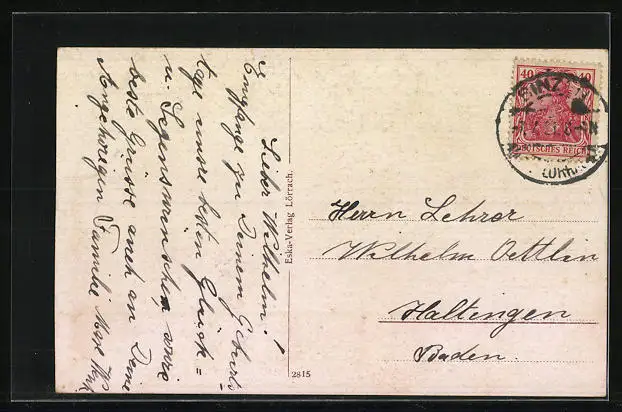 Lieber Wilhelm!
Empfange zu Deinem Geburts
tage unsre besten Glück=
u. Segenswünsche, sowie
beste Grüsse auch an Deine
Angehörigen Familie
Eska-Verlag Lörrach.
2815
40 40
DEUTSCHES REICH
Herrn Lehrer
Wilhelm Oettlin
Haltingen
Baden.